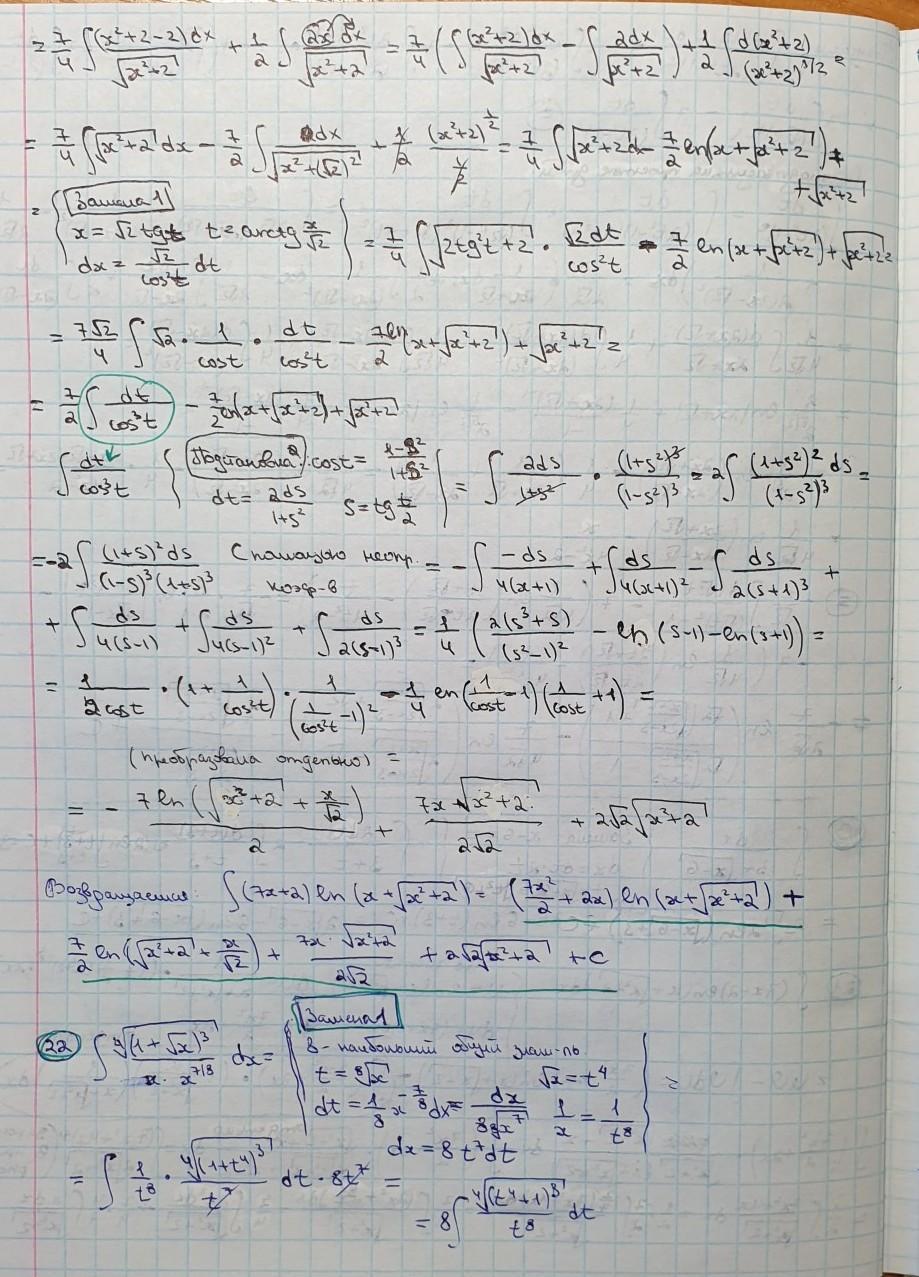 = 7/4 ∫ (x²+2-2)dx / √(x²+2) + 1/2 ∫ 2x dx / √(x²+2) = 7/4 (∫ (x²+2)dx / √(x²+2) - ∫ 2dx / √(x²+2)) + 1/2 ∫ d(x²+2) / (x²+2)^(3/2) =
= 7/4 ∫ √(x²+2) dx - 7/2 ∫ dx / √(x²+(√2)²) + 1/2 (x²+2)^(1/2) / (1/2) = 7/4 ∫ √(x²+2) dx - 7/2 ln(x+√(x²+2)) +
+ √(x²+2)
= { Замена 1
x = √2 tg t t = arctg x/√2
dx = √2/cos²t dt } = 7/4 ∫ √(2tg²t+2) · √2dt/cos²t - 7/2 ln(x+√(x²+2)) + √(x²+2) =
= 7√2/4 ∫ √2 · 1/cost · dt/cos²t - 7ln/2 (x+√(x²+2)) + √(x²+2) =
= 7/2 ∫ dt/cos³t - 7/2 ln(x+√(x²+2)) + √(x²+2)
∫ dt/cos³t { Подстановка 2: cost = (1-S²)/(1+S²)
dt = 2ds/(1+s²) S = tg t/2 } = ∫ 2ds/(1+s²) · (1+s²)³/(1-s²)³ = 2∫ (1+s²)² ds/(1-s²)³ =
= -2 ∫ (1+s)² ds / (1-s)³(1+s)³ С помощью неопр. коэф-в = -∫ -ds/4(x+1) + ∫ ds/4(x+1)² - ∫ ds/2(s+1)³ +
+ ∫ ds/4(s-1) + ∫ ds/4(s-1)² + ∫ ds/2(s-1)³ = 1/4 ( 2(s³+s)/(s²-1)² - ln(s-1) - ln(s+1)) =
= 1/2cost · (1 + 1/cos²t) · 1/(1/cos²t - 1)² - 1/4 ln(1/cost - 1)(1/cost + 1) =
(преобразовала отдельно) =
= - 7ln(√(x²+2) + x/√2)/2 + 7x √(x²+2)/2√2 + 2√2 √(x²+2)
Возвращаемся: ∫ (7x+2) ln(x+√(x²+2)) = (7x²/2 + 2x) ln(x+√(x²+2)) +
7/2 ln(√(x²+2) + x/√2) + 7x·√(x²+2)/2√2 + 2√2 √(x²+2) + C
22 ∫ ⁴√(1+√x)³ / x·x^(7/8) dx = { Замена 1
8 - наибольший общий знам-ль
t = ⁸√x √x = t⁴
dt = 1/8 x^(-7/8) dx = dx/8⁸√x⁷ 1/x = 1/t⁸
dx = 8t⁷dt } =
= ∫ 1/t⁸ · ⁴√(1+t⁴)³/t⁷ dt · 8t⁷ =
= 8∫ ⁴√(t⁴+1)³/t⁸ dt